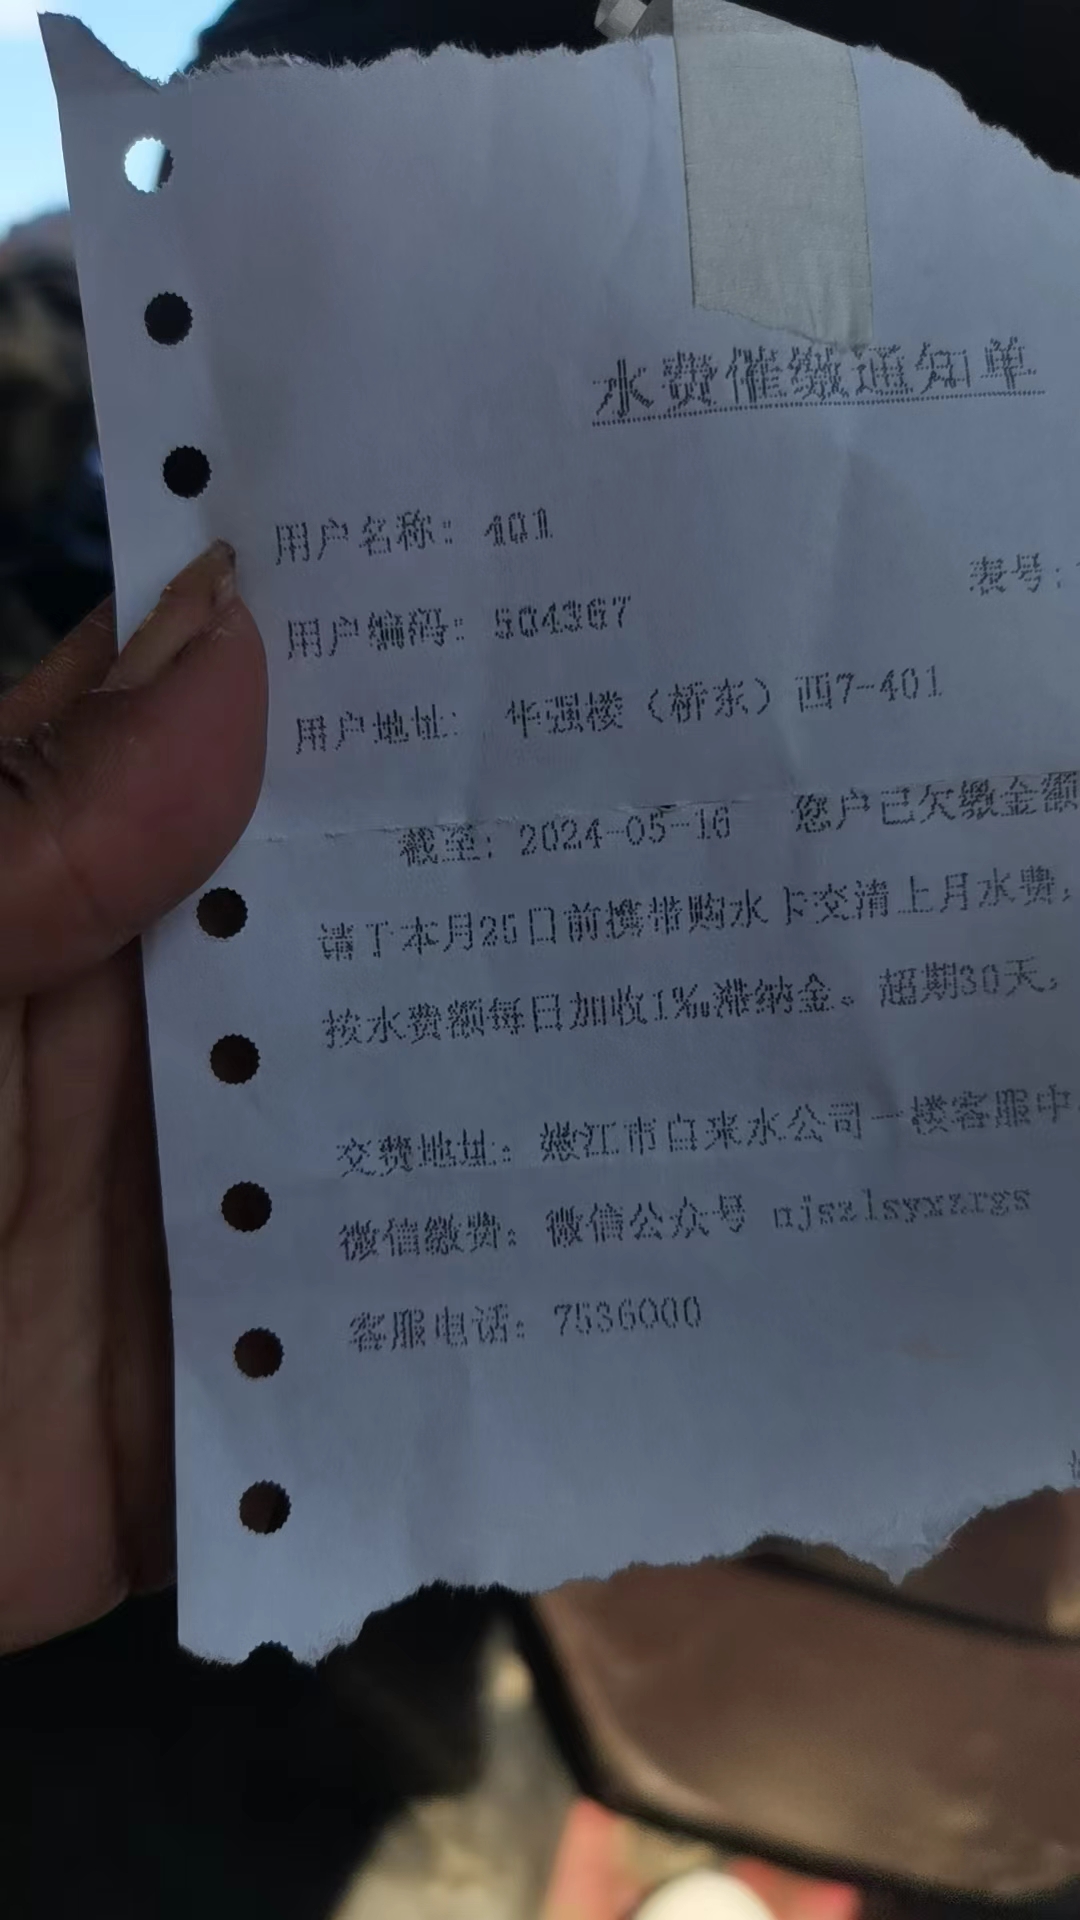 水费催缴通知单
用户名称：401
表号：
用户编码：504367
用户地址： 华强楼（桥东）西7-401
截至：2024-05-16 您户已欠缴金额
请于本月25日前携带购水卡交清上月水费，
按水费额每日加收1‰滞纳金。超期30天，
交费地址：嫩江市自来水公司一楼客服中
微信缴费：微信公众号 njszlsyxzrgs
客服电话：7536000